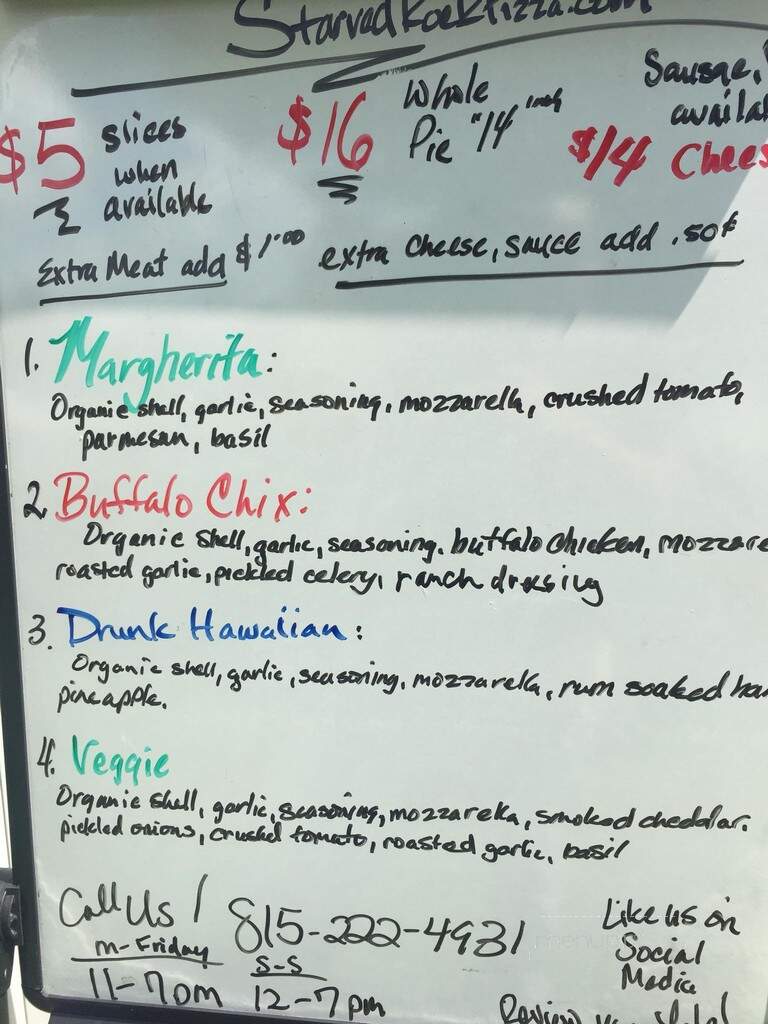 StarvedRockPizza.com
$5 slices when available
$16 Whole Pie "14" inch
Sausage,
availa
$14 Chees
Extra Meat add $1.00 extra cheese, sauce add .50¢
1. Margherita:
Organic shell, garlic, seasoning, mozzarella, crushed tomato,
parmesan, basil
2. Buffalo Chix:
Organic shell, garlic, seasoning, buffalo chicken, mozzare
roasted garlic, pickled celery, ranch dressing
3. Drunk Hawaiian:
Organic shell, garlic, seasoning, mozzarella, rum soaked ha
pineapple.
4. Veggie
Organic shell, garlic, seasoning, mozzarella, smoked cheddar.
pickled onions, crushed tomato, roasted garlic, basil
Call Us! 815-222-4931
M-Friday
11-7pm
S-S
12-7pm
Like us on
Social
Media
Review